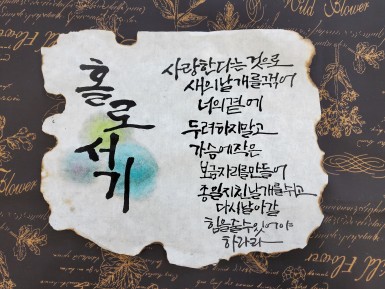 홀로서기
사랑한다는 것으로
새의 날개를 꺾어
너의 곁에
두려 하지 말고
가슴에 작은
보금자리를 만들어
종일 지친 날개를 쉬고
다시 날아갈
힘을 줄 수 있어야
하리라
Wild Flower